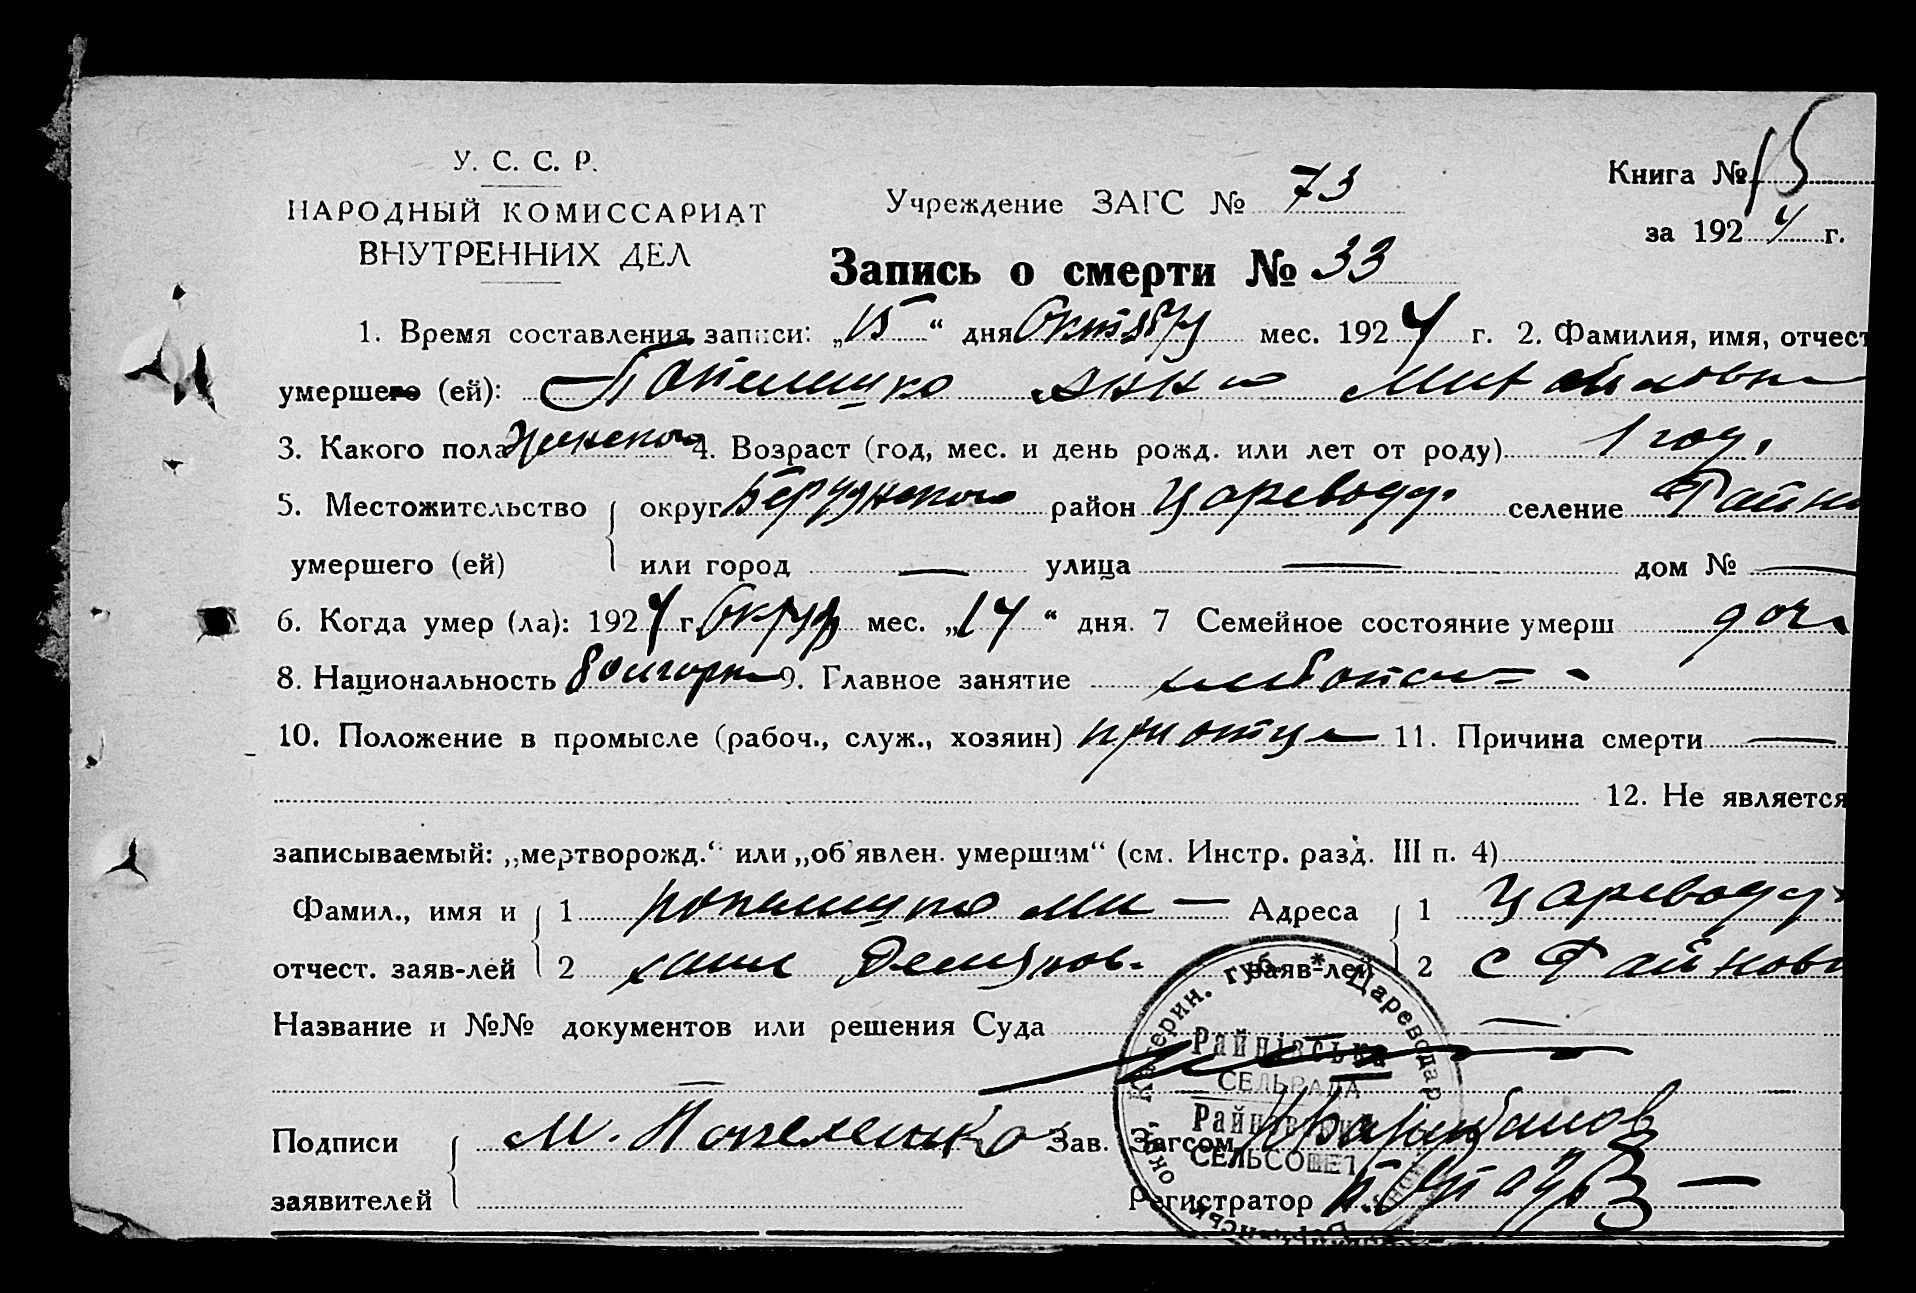 У. С. С. Р.
НАРОДНЫЙ КОМИССАРИАТ
ВНУТРЕННИХ ДЕЛ
Учреждение ЗАГС № 73
Книга № 15
за 1924 г.
Запись о смерти № 33
1. Время составления записи: „15“ дня Октября мес. 1924 г. 2. Фамилия, имя, отчест
умершего (ей): Анна
3. Какого пола Женского 4. Возраст (год, мес. и день рожд. или лет от роду) 1 год.
5. Местожительство округ район Цареводар. селение Райно
умершего (ей) или город — улица — дом № —
6. Когда умер (ла): 1924 г. мес. „14“ дня. 7 Семейное состояние умерш доч
8. Национальность болгарка 9. Главное занятие
10. Положение в промысле (рабоч., служ., хозяин) при отце 11. Причина смерти —
12. Не является
записываемый: „мертворожд.“ или „об'явлен. умершим“ (см. Инстр. разд. III п. 4)
Фамил., имя и 1 ми — Адреса 1 Цареводар
отчест. заяв-лей 2 заяв-лей 2 с Райновк
Название и №№ документов или решения Суда —
—
Подписи М. Попеленко Зав. Загсом
заявителей Регистратор
Катерин. губ. * Цареводар.
Райнівська
СЕЛЬРАДА
Райновский
СЕЛЬСОВЕТ